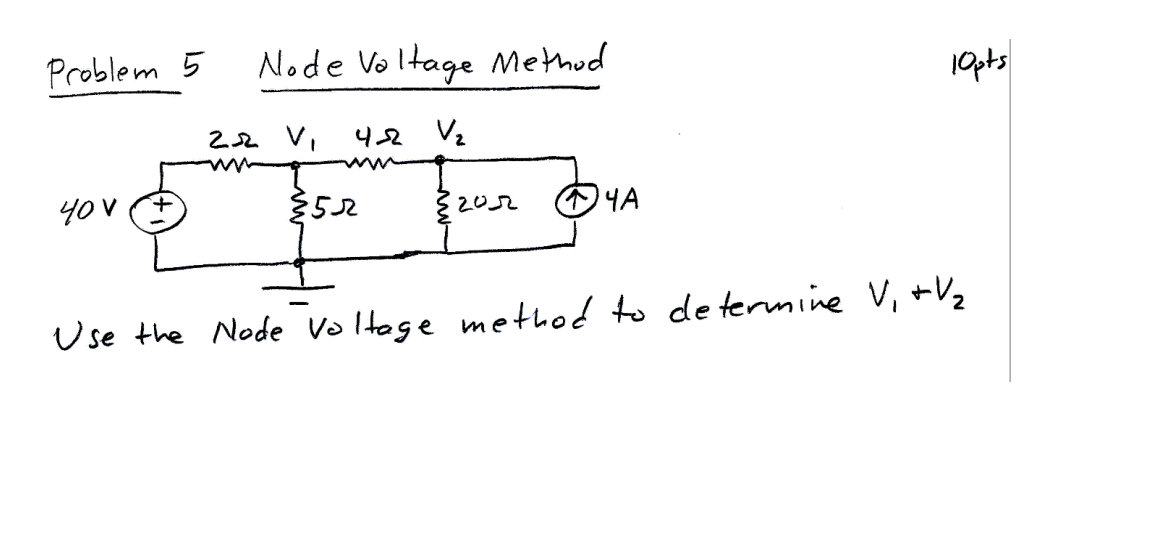 Problem 5 Node Voltage Method 10pts
2Ω V₁ 4Ω V₂
40V + − 5Ω 20Ω 4A
Use the Node Voltage method to determine V₁ + V₂